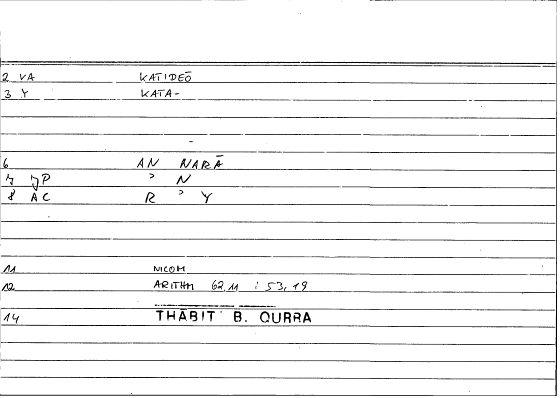 2 VA KATIDEŌ
3 Y KATA-
6 AN NARĀ
7 ʾN
8 AC R ʾ Y
11 NICOM
12 ARITHM 62,11 : 53,19
14 THĀBIT B. QURRA